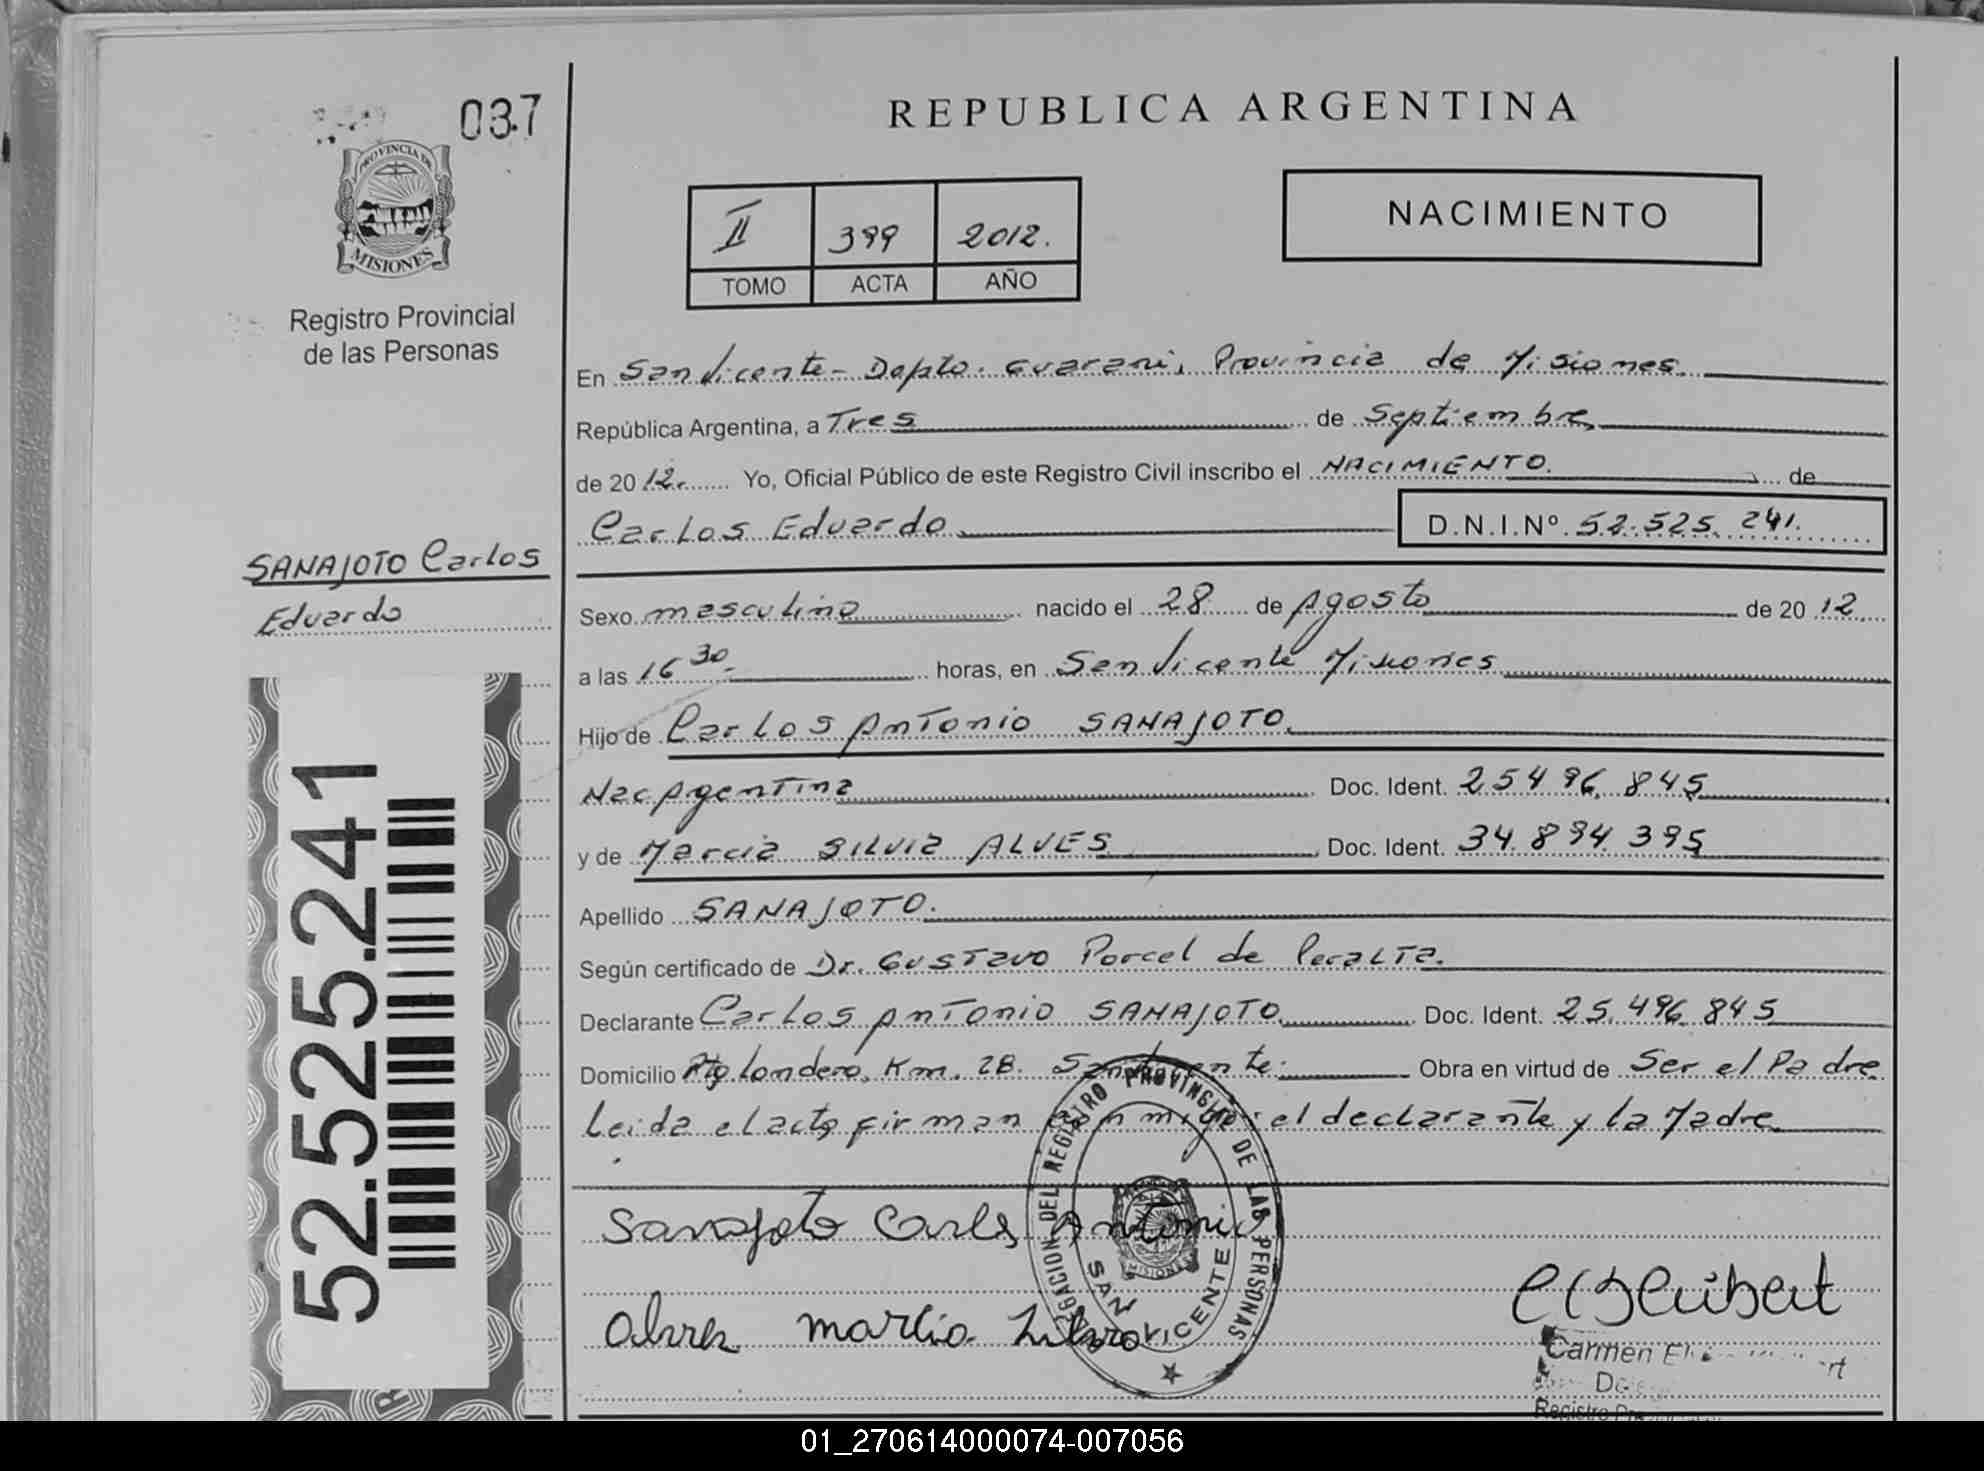 037
PROVINCIA DE
MISIONES
Registro Provincial
de las Personas
SANAJOTO Carlos
Eduardo
52.525.241
REPUBLICA ARGENTINA
II 399 2012.
TOMO ACTA AÑO
NACIMIENTO
En San Vicente - Depto. Guarani, Provincia de Misiones
República Argentina, a Tres de Septiembre
de 2012. Yo, Oficial Público de este Registro Civil inscribo el NACIMIENTO. de
Carlos Eduardo D.N.I.Nº. 52.525.241.
Sexo masculino nacido el 28 de Agosto de 2012
a las 16 30 horas, en San Vicente Misiones
Hijo de Carlos Antonio SANAJOTO.
Nac Agentina Doc. Ident. 25496.845
y de Marcia SILVIA ALVES Doc. Ident. 34.894.395
Apellido SANAJOTO.
Según certificado de Dr. Gustavo Porcel de Peralta.
Declarante Carlos Antonio SANAJOTO Doc. Ident. 25.496.845
Domicilio Londero, Km. 28. San Vicente. Obra en virtud de Ser el Padre
Leida el acta, firman con migo el declarante y la Madre
DEL REGISTRO PROVINCIAL DE LAS PERSONAS
MISIONES
SAN VICENTE
Sanajoto Carls Antonio
Marcia
Carmen
01_270614000074-007056